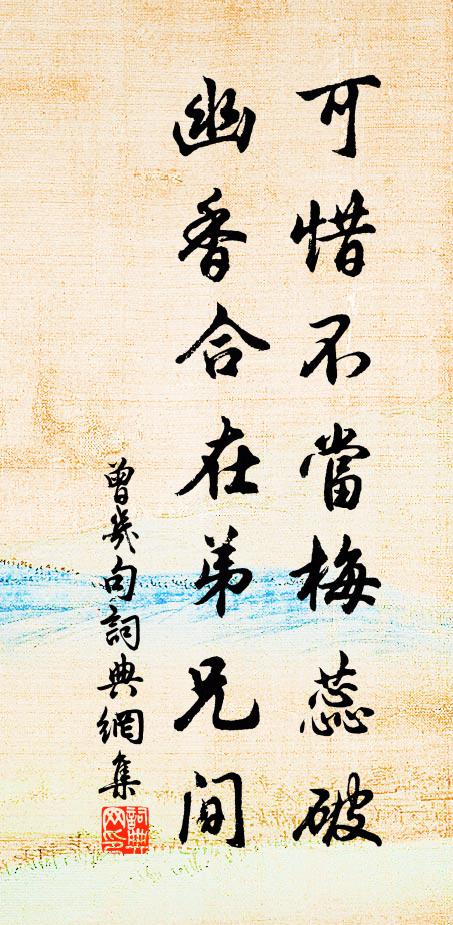 可惜不當梅蕊破
幽香合在弟兄间
曾幾句詞典網集
詞典網印